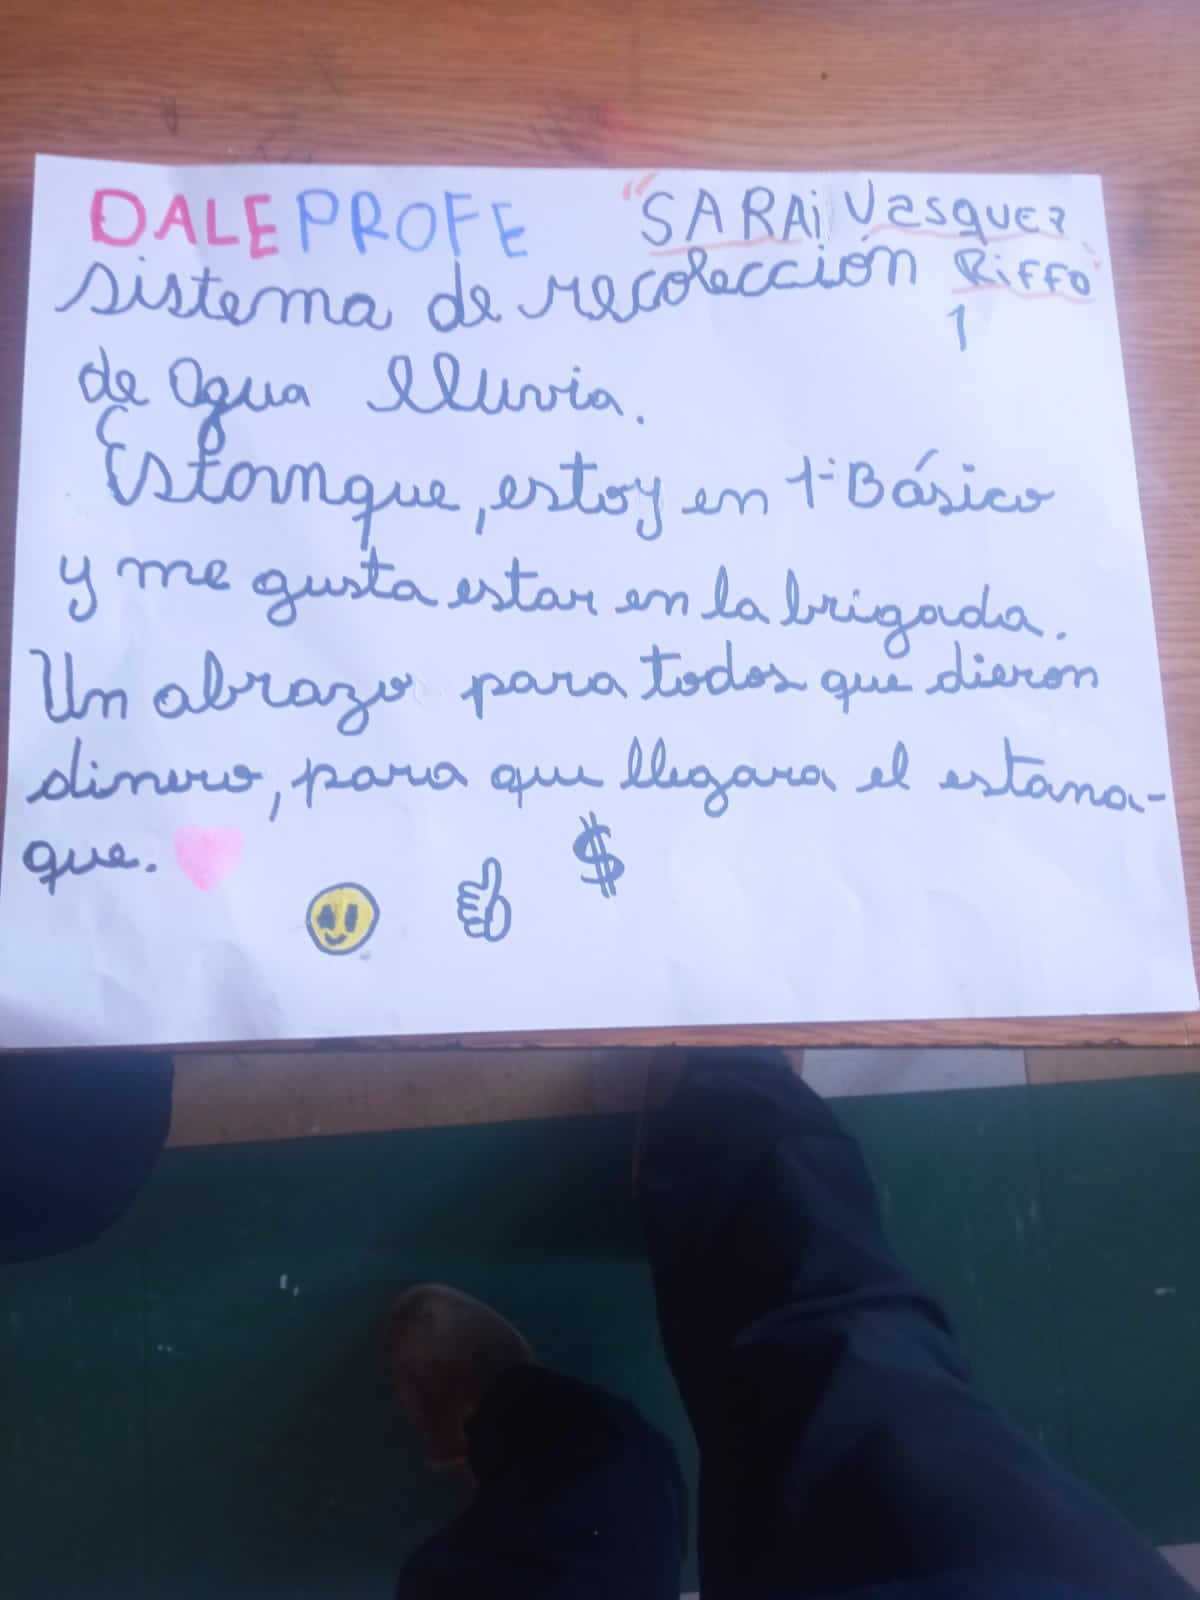 DALE PROFE "SARAi Vasquez
Riffo"
1
sistema de recolección
de Agua lluvia.
Estanque, estoy en 1° Básico
y me gusta estar en la brigada.
Un abrazo para todos que dieron
dinero, para que llegara el estana-
que.
$